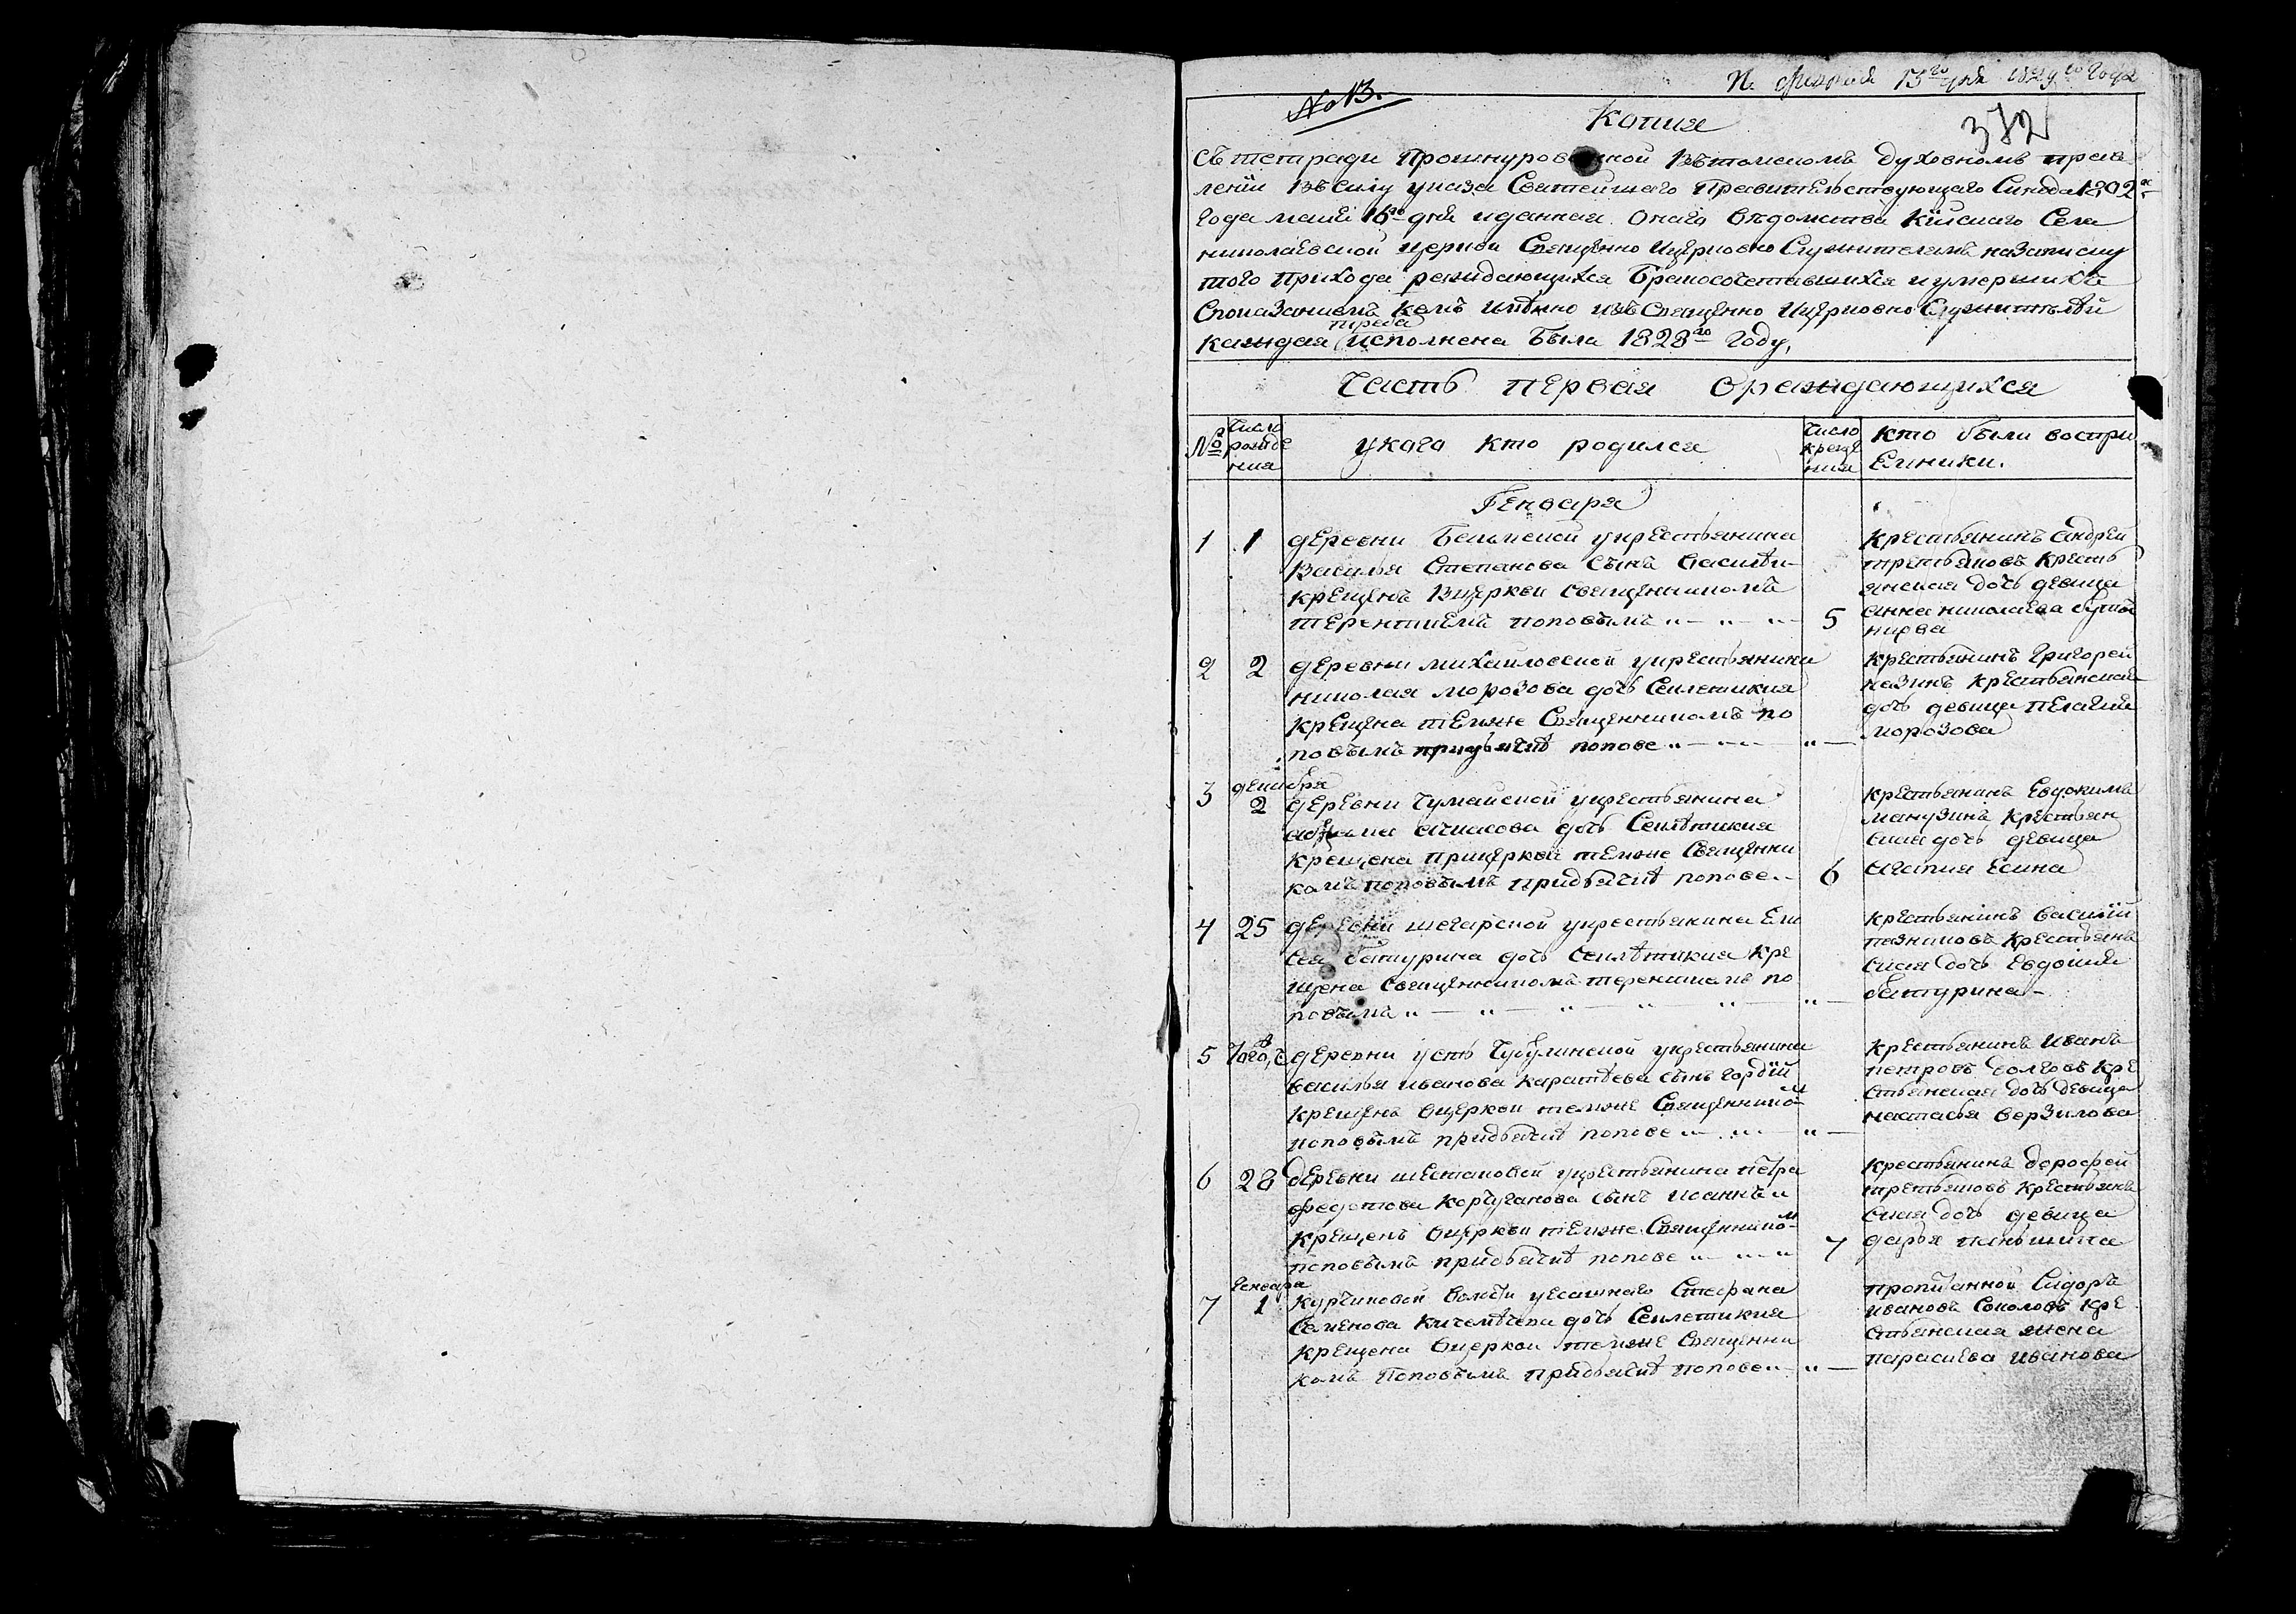 П. февраля 13го дня 1829го года
№ 13.
Копия
372
Съ тетради прошнурованной въ томскомъ духовномъ прав
лении въ силу указа Святейшаго Правительствующаго Синода 1802го
года маия 16го дня и данная онаго ведомства Кiйскаго Села
николаевской церкви Священно и церковно Служителямъ на записку
того прихода рождающихся Бракосочетавшихся и умершихъ
Споказаниемъ кемъ имѣнно изъ Священно и церковно Служителѣй
треба
каждая исполнена Была 1828го году,
Часть первая о рождающихся
№
Число рожде ния
у кого кто родился
Число креще ния
кто были воспри
емники.
Генваря
1 1 деревни Бельменской у крестьянина
Василья Степанова сынъ Василѣи
крещенъ В церкви священникомъ
терентиемъ поповымъ 5
крестьянинъ андрей
третьяковъ кресть
янская дочь девица
анна николаева
2 2 деревни михайловской у крестьянина
николая морозова дочь Сиклетикия
крещена темже Священникомъ по
повымъ придьячкѣ попове
крестьянинъ Григорей
казинъ крестьянская
дочь девица пелагия
морозова
декабря
3 2 деревни Чумайской у крестьянина
ачкасова дочь Сиклѣтикия
крещена прицеркви темже Священни
комъ поповымъ придьячкѣ попове 6
крестьянинъ Евдокимъ
манузинъ крестьян
ская дочь девица
Есина
4 25 деревни шегарской у крестьянина Ели
сея батурина дочь Сиклѣтикия кре
щена Священникомъ терентиемъ по
повымъ
крестьянинъ василий
пазниковъ крестьянъ
ская дочь Евдокия
батурина
5 Того, ч деревни усть Чебулинской у крестьянина
василья иванова каратѣева сынъ гордiй
крещенъ вцеркви темже Священникомъ
поповымъ придьячкѣ попове
крестьянинъ иванъ
петровъ волговъ кре
стьянская дочь девица
настасья верзилова
6 28 деревни шестаковой у крестьянина петра
федотова корчуганова сынъ иоаннъ
крещенъ вцеркви темже Священникомъ
поповымъ придьячкѣ попове 7
крестьянинъ дорофей
третьяковъ крестьянъ
ская дочь девица
дарья
генваря
7 1 курчиковой волости у ясашнаго Стефана
Семенова дочь Сиклетикия
крещена вцеркви темже Священни
комъ Поповымъ придьячкѣ попове
пропитанной Сидоръ
ивановъ Соколовъ кре
стьянская жена
параскева иванова